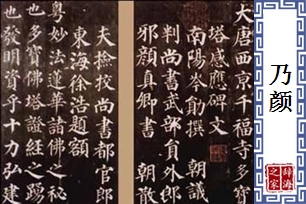 乃颜
辞海之家
大唐西京千福寺多寶
塔感應碑文
南陽岑勛撰 朝議
判尚書武部員外郎
邪顏真卿書 朝散
夫撿校尚書都官郎
東海徐浩題額
粵妙法蓮華諸佛之秘
也多寶佛塔證經之踴
也發明資乎十力弘建